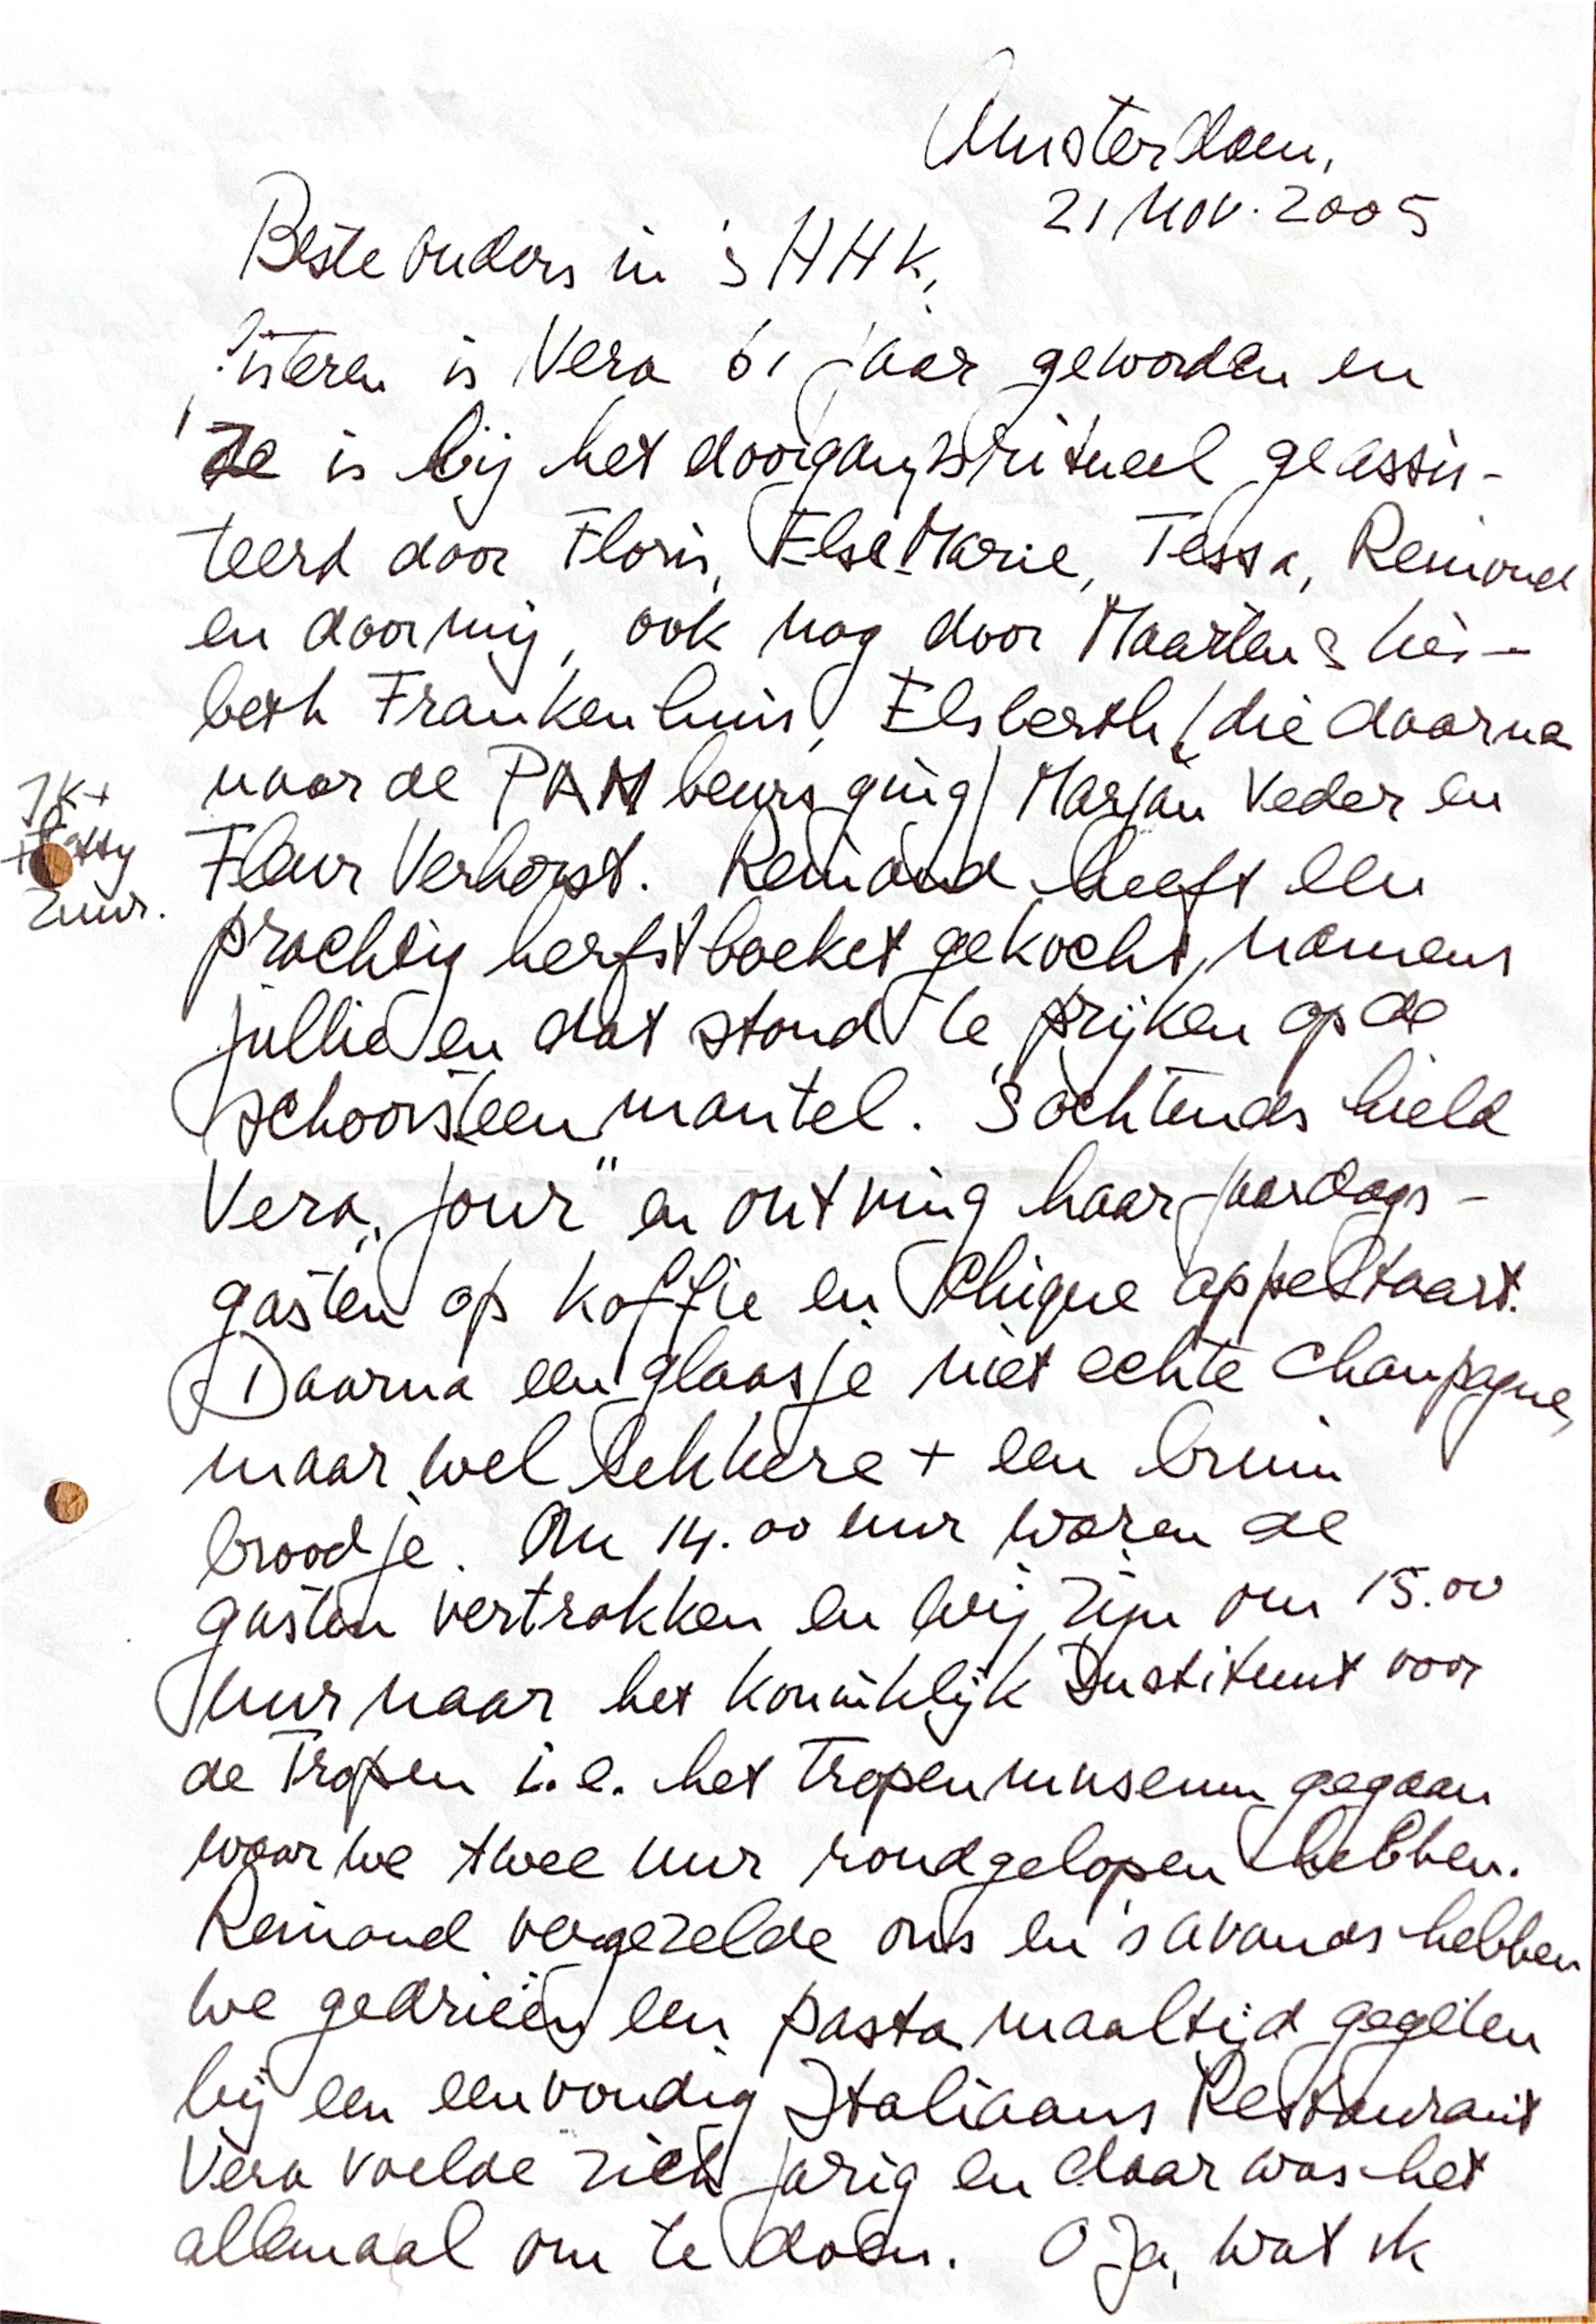 Amsterdam,
21 Nov. 2005
Beste ouders in 's HHK,
Gisteren is Vera 61 jaar geworden en
ze is bij het doorgangsritueel geassis-
teerd door Floris, Else-Marie, Tessa, Reinoud
en door mij, ook nog door Maarten & Lies-
beth Frankenhuis, Elsberth (die daarna
naar de PAN beurs ging) Marjan Veder en
JK+
Hetty
Zuur.
Fleur Verhorst. Reinoud heeft een
prachtig herfstboeket gekocht, namens
jullie en dat stond te prijken op de
schoorsteenmantel. 's Ochtends hield
Vera „jour" en ontving haar jaardags-
gasten op koffie en chique appeltaart.
Daarna een glaasje niet echte champagne,
maar wel lekkere + een bruin
broodje. Om 14.00 uur waren de
gasten vertrokken en wij zijn om 15.00
uur naar het Koninklijk Instituut voor
de Tropen i.e. het Tropenmuseum gegaan
waar we twee uur rondgelopen hebben.
Reinoud vergezelde ons en 's avonds hebben
we gedrieën een pasta maaltijd gegeten
bij een eenvoudig Italiaans Restaurant
Vera voelde zich jarig en daar was het
allemaal om te doen. O ja, wat ik